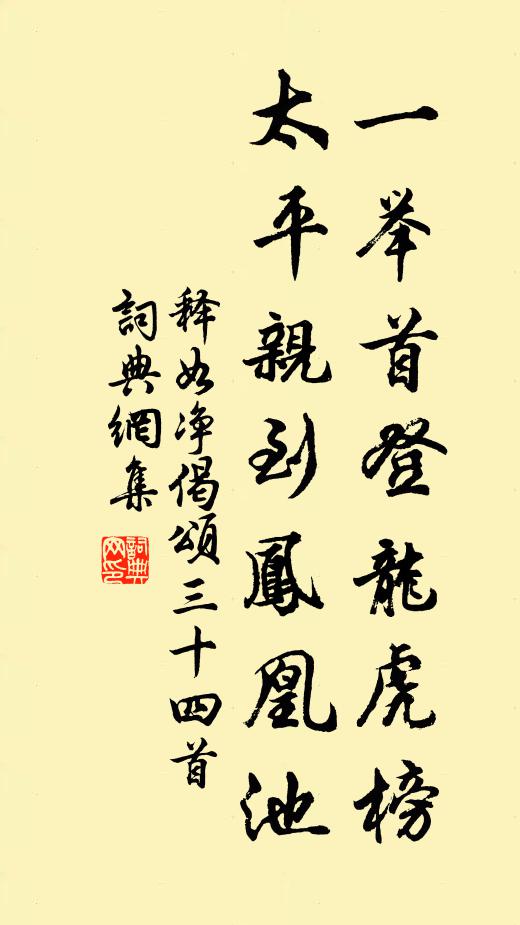 一举首登龍虎榜
太平親到鳳凰池
释如净偈頌三十四首
詞典網集
詞典
网印